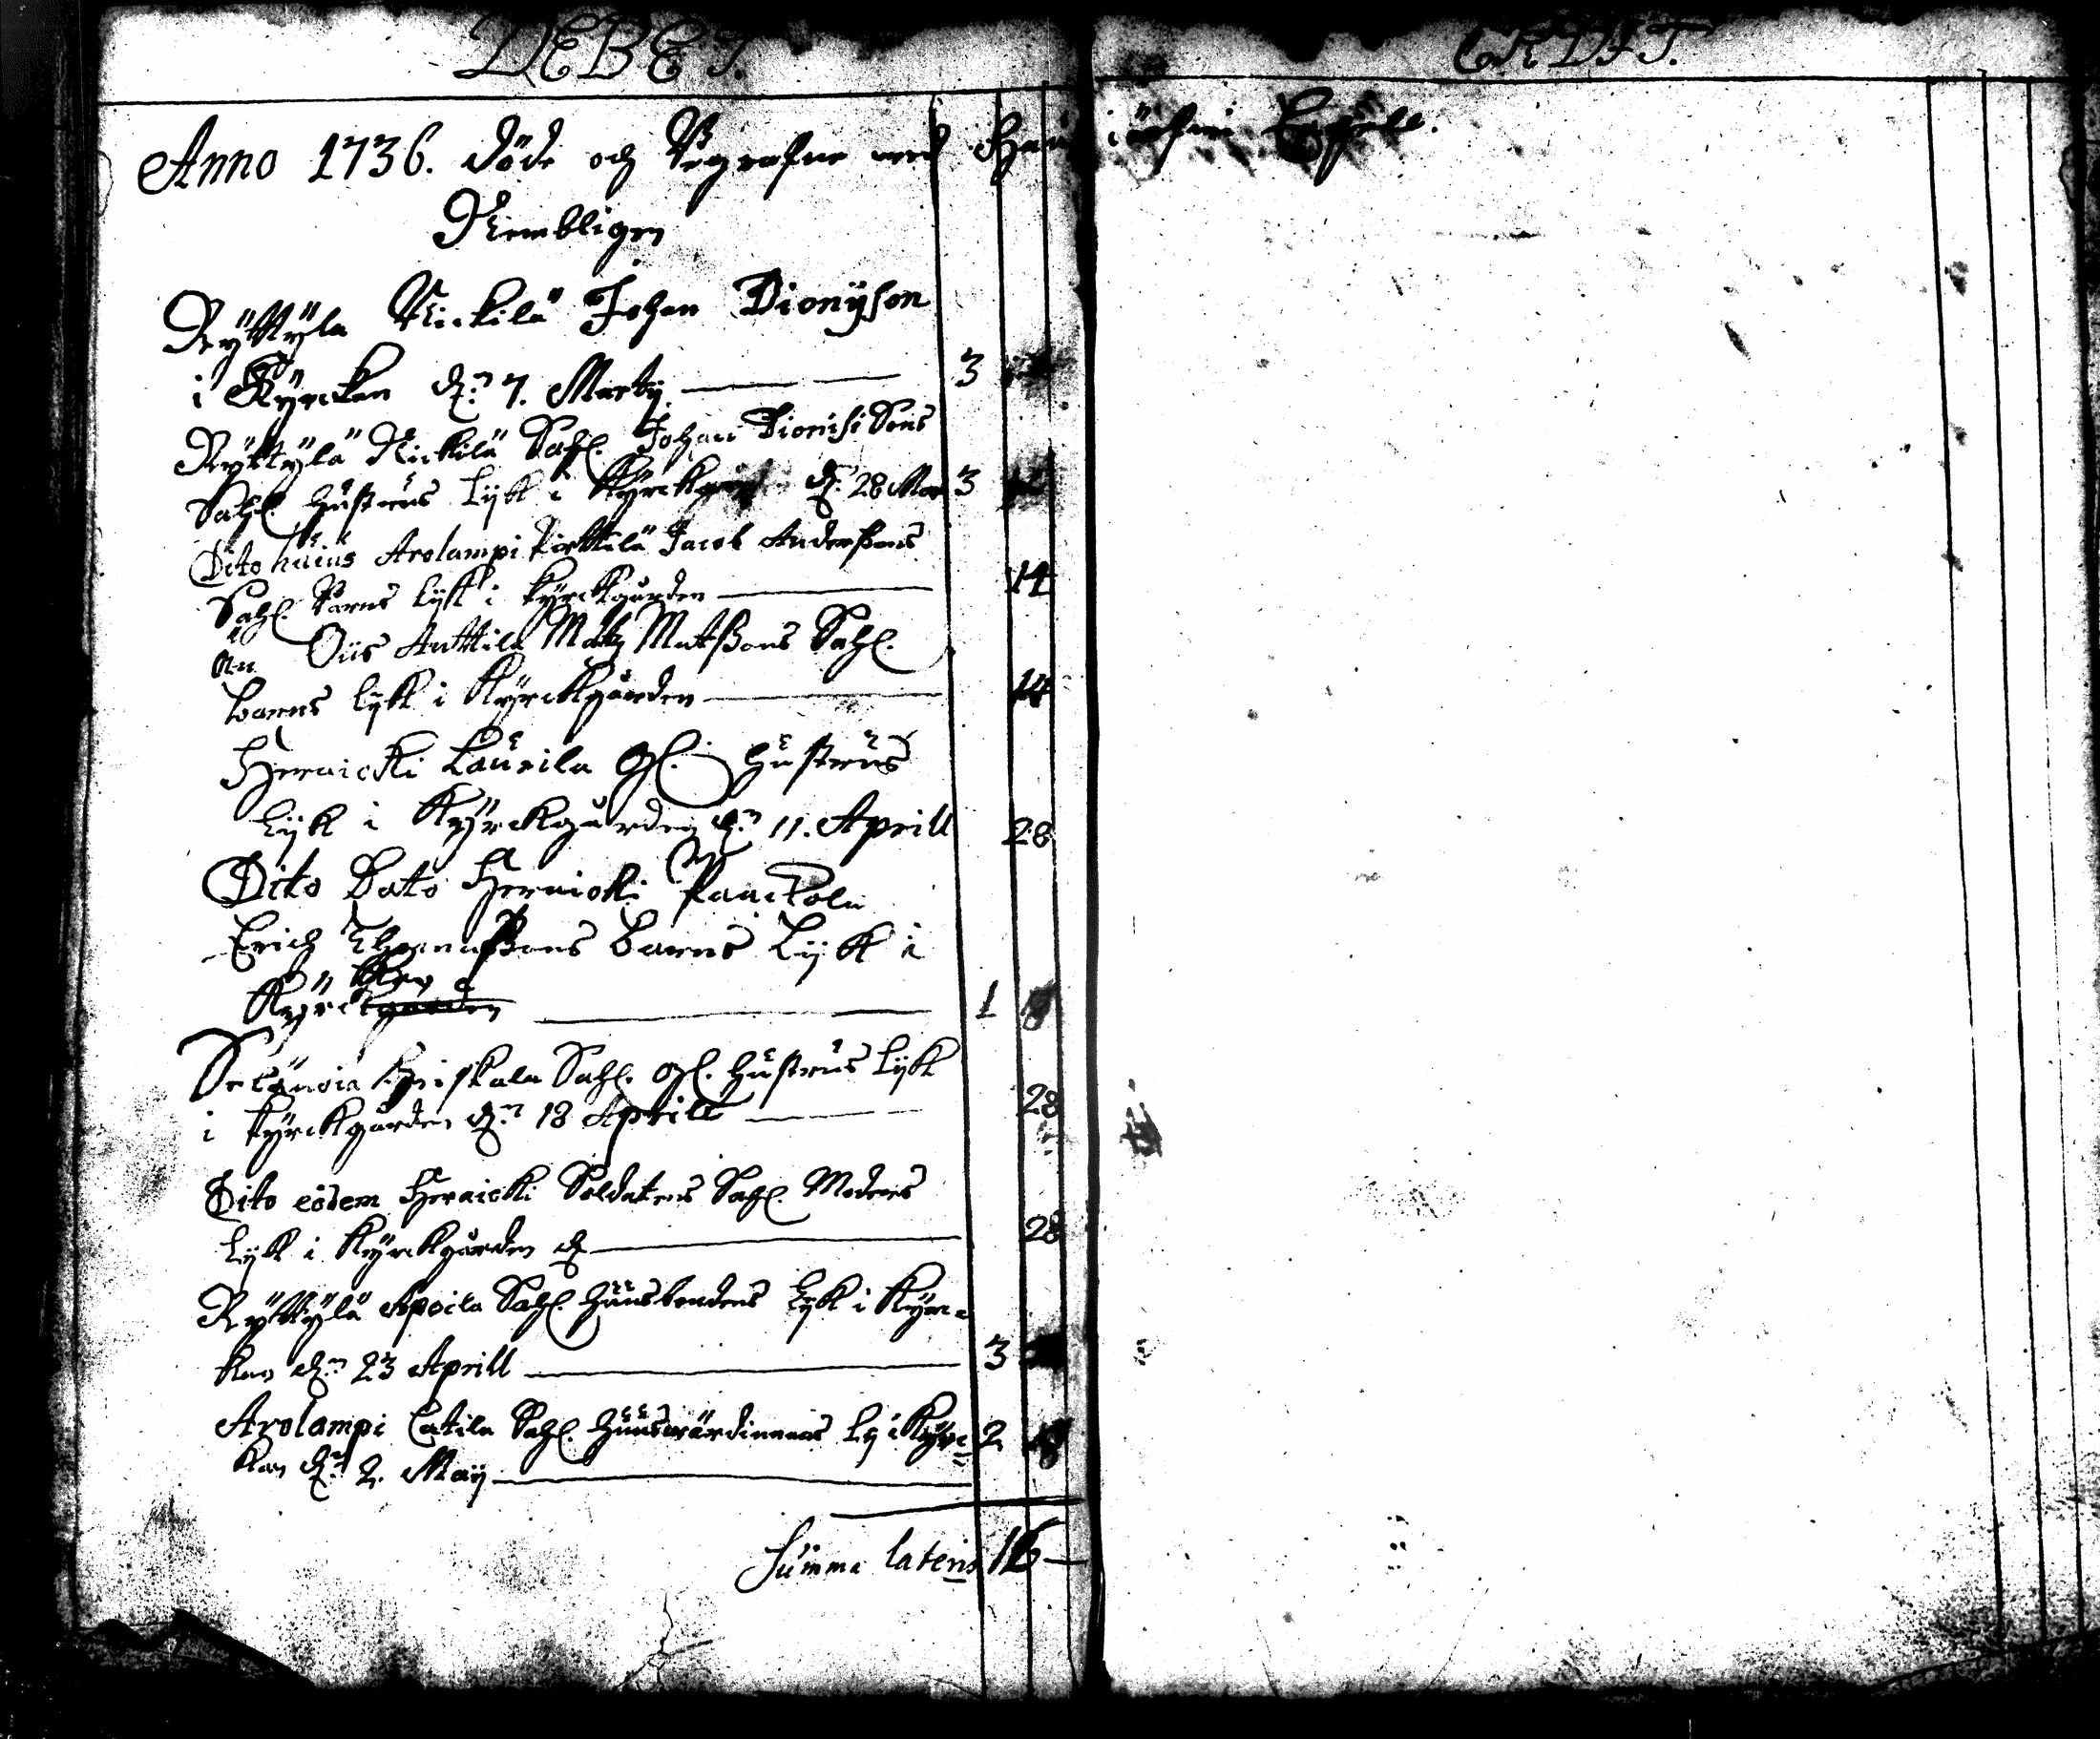 DEBET.
CREDIT.
Anno 1736. döde och begrafne wed Hausjärfwi Capell.
Nembligen
Ryttylä Nickilä Johan Dionÿson
i Kÿrckan d:n 7. Martÿ 3
Rÿttÿlä Nickilä Sahl. Johan Dionisi Sons
Sahl. hustrus lÿk i Kÿrckan d:n 28 Mar 3
Dito huius Arolampi Perttilä Jacob Anderssons
Sahl. barns lÿk i kÿrckgården 14
Än Oiis Anttila Matz Matssons Sahl.
barns lÿk i Kÿrckgården 14
Heraiocki Laurila gl. hustrus
Lÿk i Kÿrckgården d:n 11. Aprill 28
Dito Dato Heraioki Paackola
Erich Thomassons barns Lÿk i
Kÿrckan 1
Selänoia Heiskala Sahl. gl. hustrus Lÿk
i kÿrckgården d:n 18 Aprill 28
Dito eodem Heraiocki Soldatens Sahl. Moders
Lÿk i Kÿrckgården d 28
Rÿttÿlä Apoila Sahl. huusbondens Lÿk i Kÿrc=
kan d:n 23 Aprill 3
Arolampi Catila Sahl. huuswärdinnans Lÿ i Kÿrc= 2
kan d:n 2. Maÿ
Summa lateris 16 —